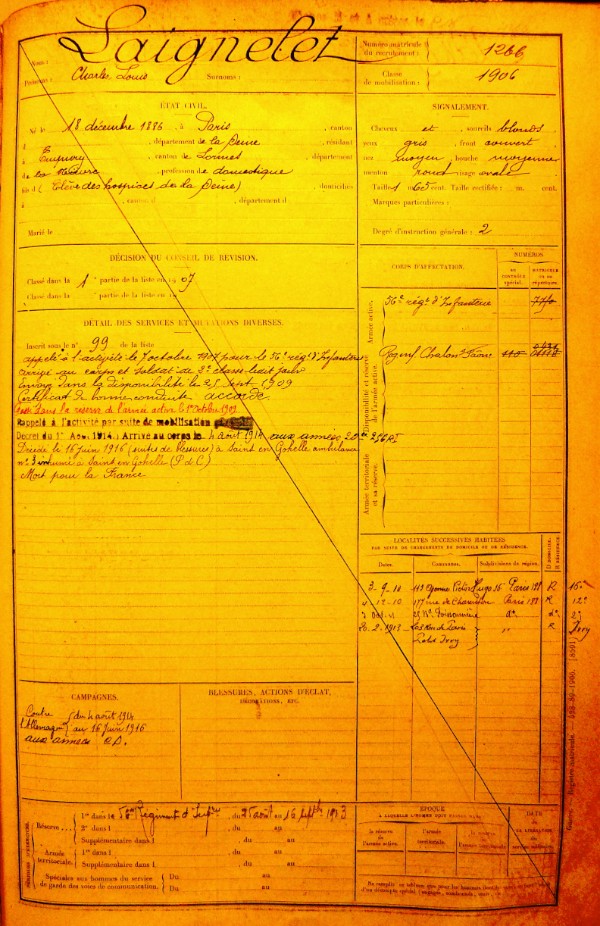 Laignelet
Nom :
Prénoms : Charles Louis Surnoms :
Numéro matricule du recrutement : 1266
Classe de mobilisation : 1906
ÉTAT CIVIL.
Né le 18 décembre 1886, à Paris, canton
d, département de la Seine, résidant
à Empury, canton de Lormes, département
de la Nièvre, profession de domestique
fils d (Élève des hospices de la Seine) domiciliés
à, canton d, département d
Marié le
SIGNALEMENT.
Cheveux et sourcils blonds
yeux gris, front couvert
nez moyen, bouche moyenne
menton rond, visage ovale
Taille 1 m. 65 cent. Taille rectifiée : m. cent.
Marques particulières :
Degré d'instruction générale : 2
DÉCISION DU CONSEIL DE REVISION.
Classé dans la 1e partie de la liste en 1907
Classé dans la partie de la liste en 19
DÉTAIL DES SERVICES ET MUTATIONS DIVERSES.
Inscrit sous le n° 99 de la liste
appelé à l'activité le 7 octobre 1907 pour le 56e rég. d'Infanterie
arrivé au corps et soldat de 2e classe ledit jour
Envoyé dans la disponibilité le 25 sept. 1909
Certificat de bonne conduite accordé.
dans la réserve de l'armée active le 1er octobre 1909
Rappelé à l'activité par suite de mobilisation
Décret du 1er Août 1914. Arrivé au corps le 4 août 1914 aux armées
Décédé le 16 juin 1916 (suites de blessures) à Saint en Gohelle ambulance
n° 3 inhumé à Saint en Gohelle (P de C)
Mort pour la France
CORPS D'AFFECTATION.
NUMÉROS
AU CONTRÔLE SPÉCIAL.
MATRICULE OU AU RÉPERTOIRE.
Armée active.
56e rég. d'Infanterie
770
Disponibilité et réserve de l'armée active.
Régim. Chalon s Saône
Armée territoriale et sa réserve.
LOCALITÉS SUCCESSIVES HABITÉES
PAR SUITE DE CHANGEMENTS DE DOMICILE OU DE RÉSIDENCE.
Dates. Communes. Subdivisions de région. D domicile. R résidence.
3-9-10 113 Avenue Victor Hugo 16 Paris R 16e
4-12-10 177 rue de Charenton Paris R 12e
Poissonnière do do 2e
20-2-1913 Paris
Petit Ivry. Ivry
CAMPAGNES.
Contre l'Allemagne
du 4 août 1914
au 16 juin 1916
aux armées
BLESSURES, ACTIONS D'ÉCLAT,
DÉCORATIONS, ETC.
Réserve
1re dans le 56e Régiment d'Infrie, du 25 août au 16 septbre 1913
2e dans l, du au
Supplémentaire dans l, du au
Armée territoriale.
1re dans l, du au
Supplémentaire dans l, du au
Spéciales aux hommes du service de garde des voies de communication. Du au
Du au
ÉPOQUE
À LAQUELLE L'HOMME DOIT PASSER DANS
la réserve de l'armée active.
l'armée territoriale.
la réserve de l'armée territoriale.
DATE DE LA LIBÉRATION du service militaire.